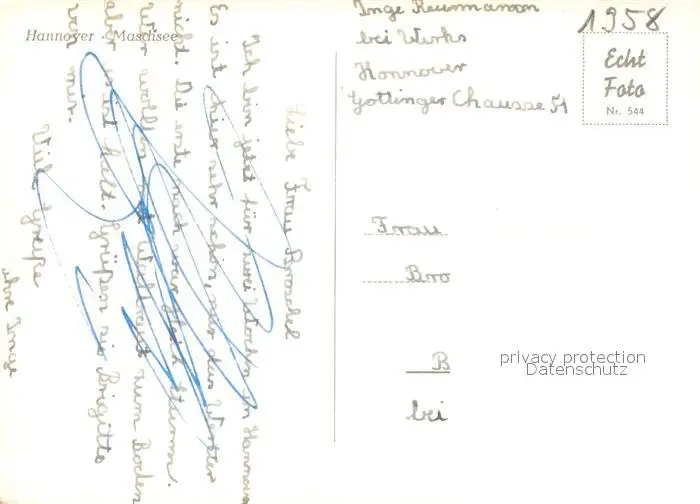 Hannover · Maschsee
Liebe Frau Broschel
Ich bin jetzt für zwei Wochen in Hannover
Es ist hier sehr schön, nur das Wetter
nicht. Die erste nach war gleich Sturm.
Wir wollten mit Waltraut zum Baden
aber es ist kalt. Grüßen sie Brigitte
von mir.
Viele Grüße
ihre Inge
Inge Reumann
bei Wirks
Hannover
Gottinger Chausse 51
1958
Echt
Foto
Nr. 544
Frau
Bro
B
bei
privacy protection
Datenschutz